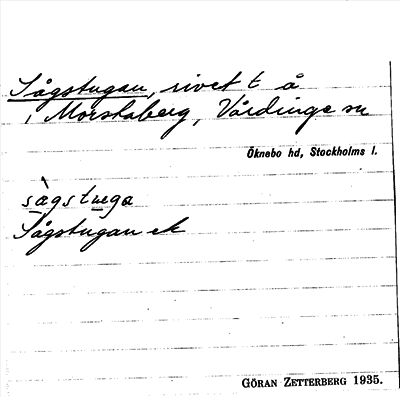 Sågstugan, rivet t å
i Morshaberg, Vårdinge sn
Öknebo hd, Stockholms l.
sàgstuga
Sågstugan ek
GÖRAN ZETTERBERG 1935.